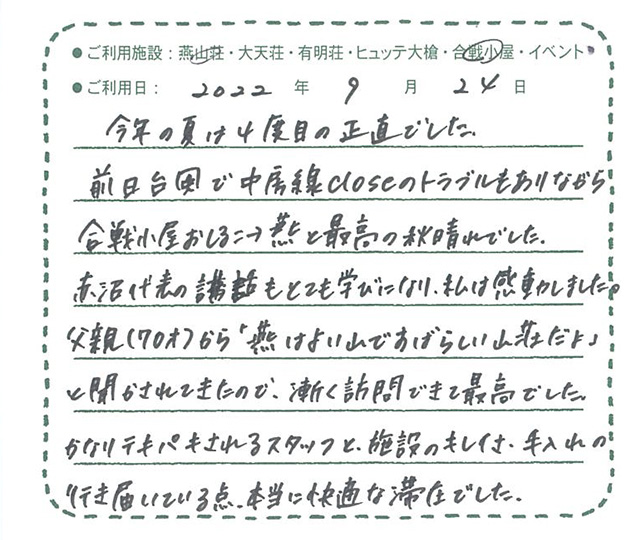 ●ご利用施設：燕山荘・大天荘・有明荘・ヒュッテ大槍・合戦小屋・イベント
●ご利用日： 2022 年 9 月 24 日
今年の夏は4度目の正直でした。
前日台風で中房線closeのトラブルもありながら
合戦小屋おしるこ→燕と最高の秋晴れでした。
赤沼代表の講話もとても学びになり、私は感動しました。
父親(70才)から「燕はよい山ですばらしい山荘だよ」
と聞かされてきたので、漸く訪問できて最高でした。
かなりテキパキされるスタッフと、施設のキレイさ、手入れの
行き届いている点、本当に快適な滞在でした。